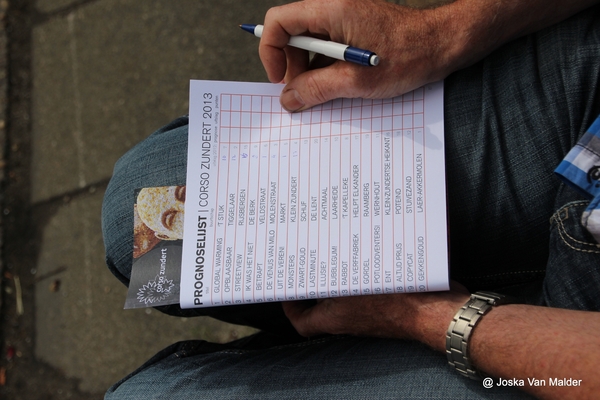 PROGNOSELIJST | CORSO ZUNDERT 2013
1 GLOBAL WARMING 'T STUK
2 OPBLAASBAAR TIGGELAAR
3 STREETVIEW RIJSBERGEN
4 IK WAS HET NIET DE BERK
5 BETRAPT VELDSTRAAT
6 DE VENUS VAN MILO MOLENSTRAAT
7 UIT DE VEREN! MARKT
8 MONSTERS KLEIN-ZUNDERT
9 ZWART-GOUD SCHIJF
10 LASTMINUTE DE LENT
ILLUSIE ACHTMAAL
BUBBLEGUM! LAARHEIDE
RABBOT 'T KAPELLEKE
DE VERFFABRIEK HELPT ELKANDER
GORDEL RAAMBERG
POTLOOD(VENTERS) WERNHOUT
ENT KLEIN-ZUNDERTSE HEIKANT
NATUG PRIJS POTEIND
COPYCAT STUIVEZAND
GEKKENGOUD LAER-AKKERMOLEN
corso zundert
@ Joska Van Malder